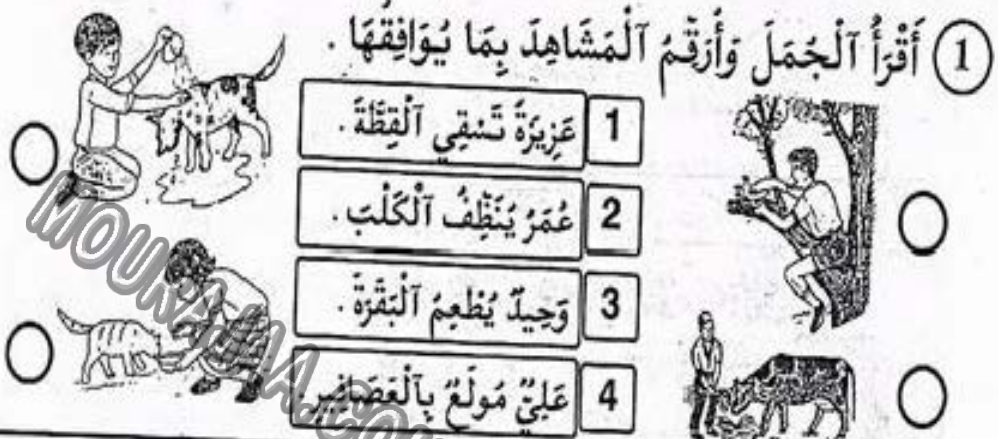 1 أَقْرَأُ ٱلْجُمَلَ وَأُرَقِّمُ ٱلْمَشَاهِدَ بِمَا يُوَافِقُهَا .
1 عَزِيزَةُ تَسْقِي ٱلْقِطَّةَ .
2 عُمَرُ يُنَظِّفُ ٱلْكَلْبَ .
3 وَحِيدٌ يُطْعِمُ ٱلْبَقَرَةَ .
4 عَلِيٌّ مُولَعٌ بِٱلْعَصَافِيرِ
MOURAJAA.COM